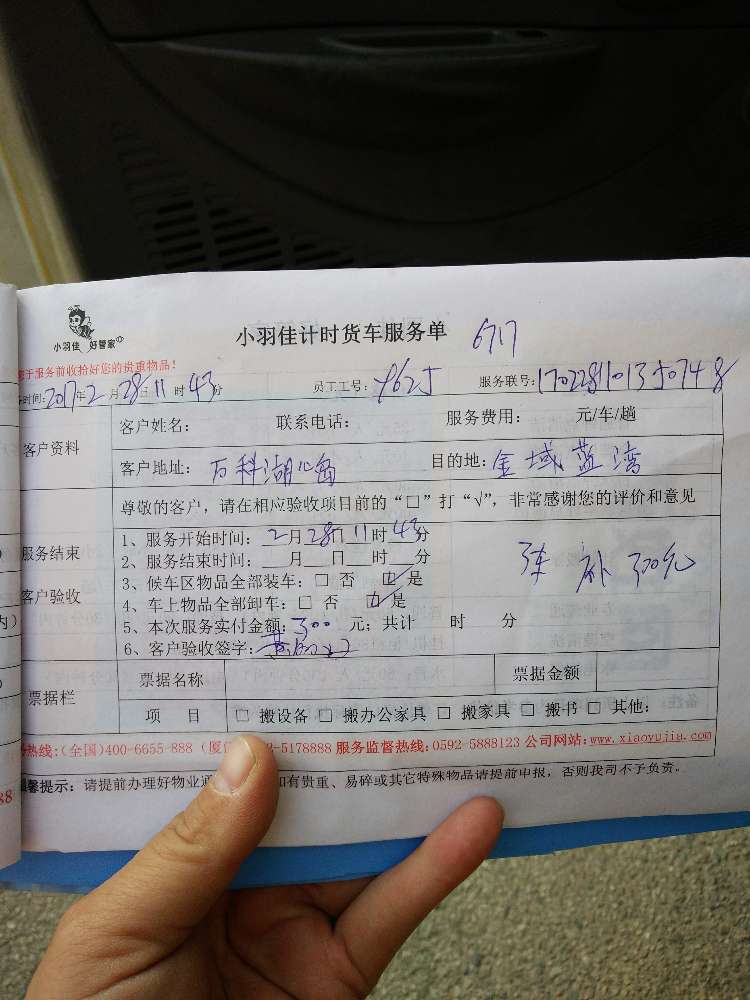 小羽佳 好管家
小羽佳计时货车服务单 6717
于服务前收拾好您的贵重物品!
时间:2017年2月28日11时43分 员工工号: 服务联号:
客户资料
客户姓名: 联系电话: 服务费用: 元/车/趟
客户地址:万科湖心岛 目的地:金域蓝湾
服务结束
客户验收
尊敬的客户,请在相应验收项目前的“□”打“√”,非常感谢您的评价和意见
1、服务开始时间:2月28日11时43分
2、服务结束时间:__月__日__时__分
3、候车区物品全部装车:□ 否 ☑是
4、车上物品全部卸车:□ 否 ☑是
5、本次服务实付金额:300元;共计 时 分
6、客户验收签字:
补 300元
票据栏
票据名称 票据金额
项 目 □ 搬设备 □ 搬办公家具 □ 搬家具 □ 搬书 □ 其他:
热线:(全国)400-6655-888 (厦 -5178888 服务监督热线:0592-5888123 公司网站:www.xiaoyujia.com
馨提示:请提前办理好物业 如有贵重、易碎或其它特殊物品请提前申报,否则我司不予负责。